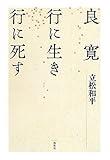 良寛
行に生き
行に死す
立松和平